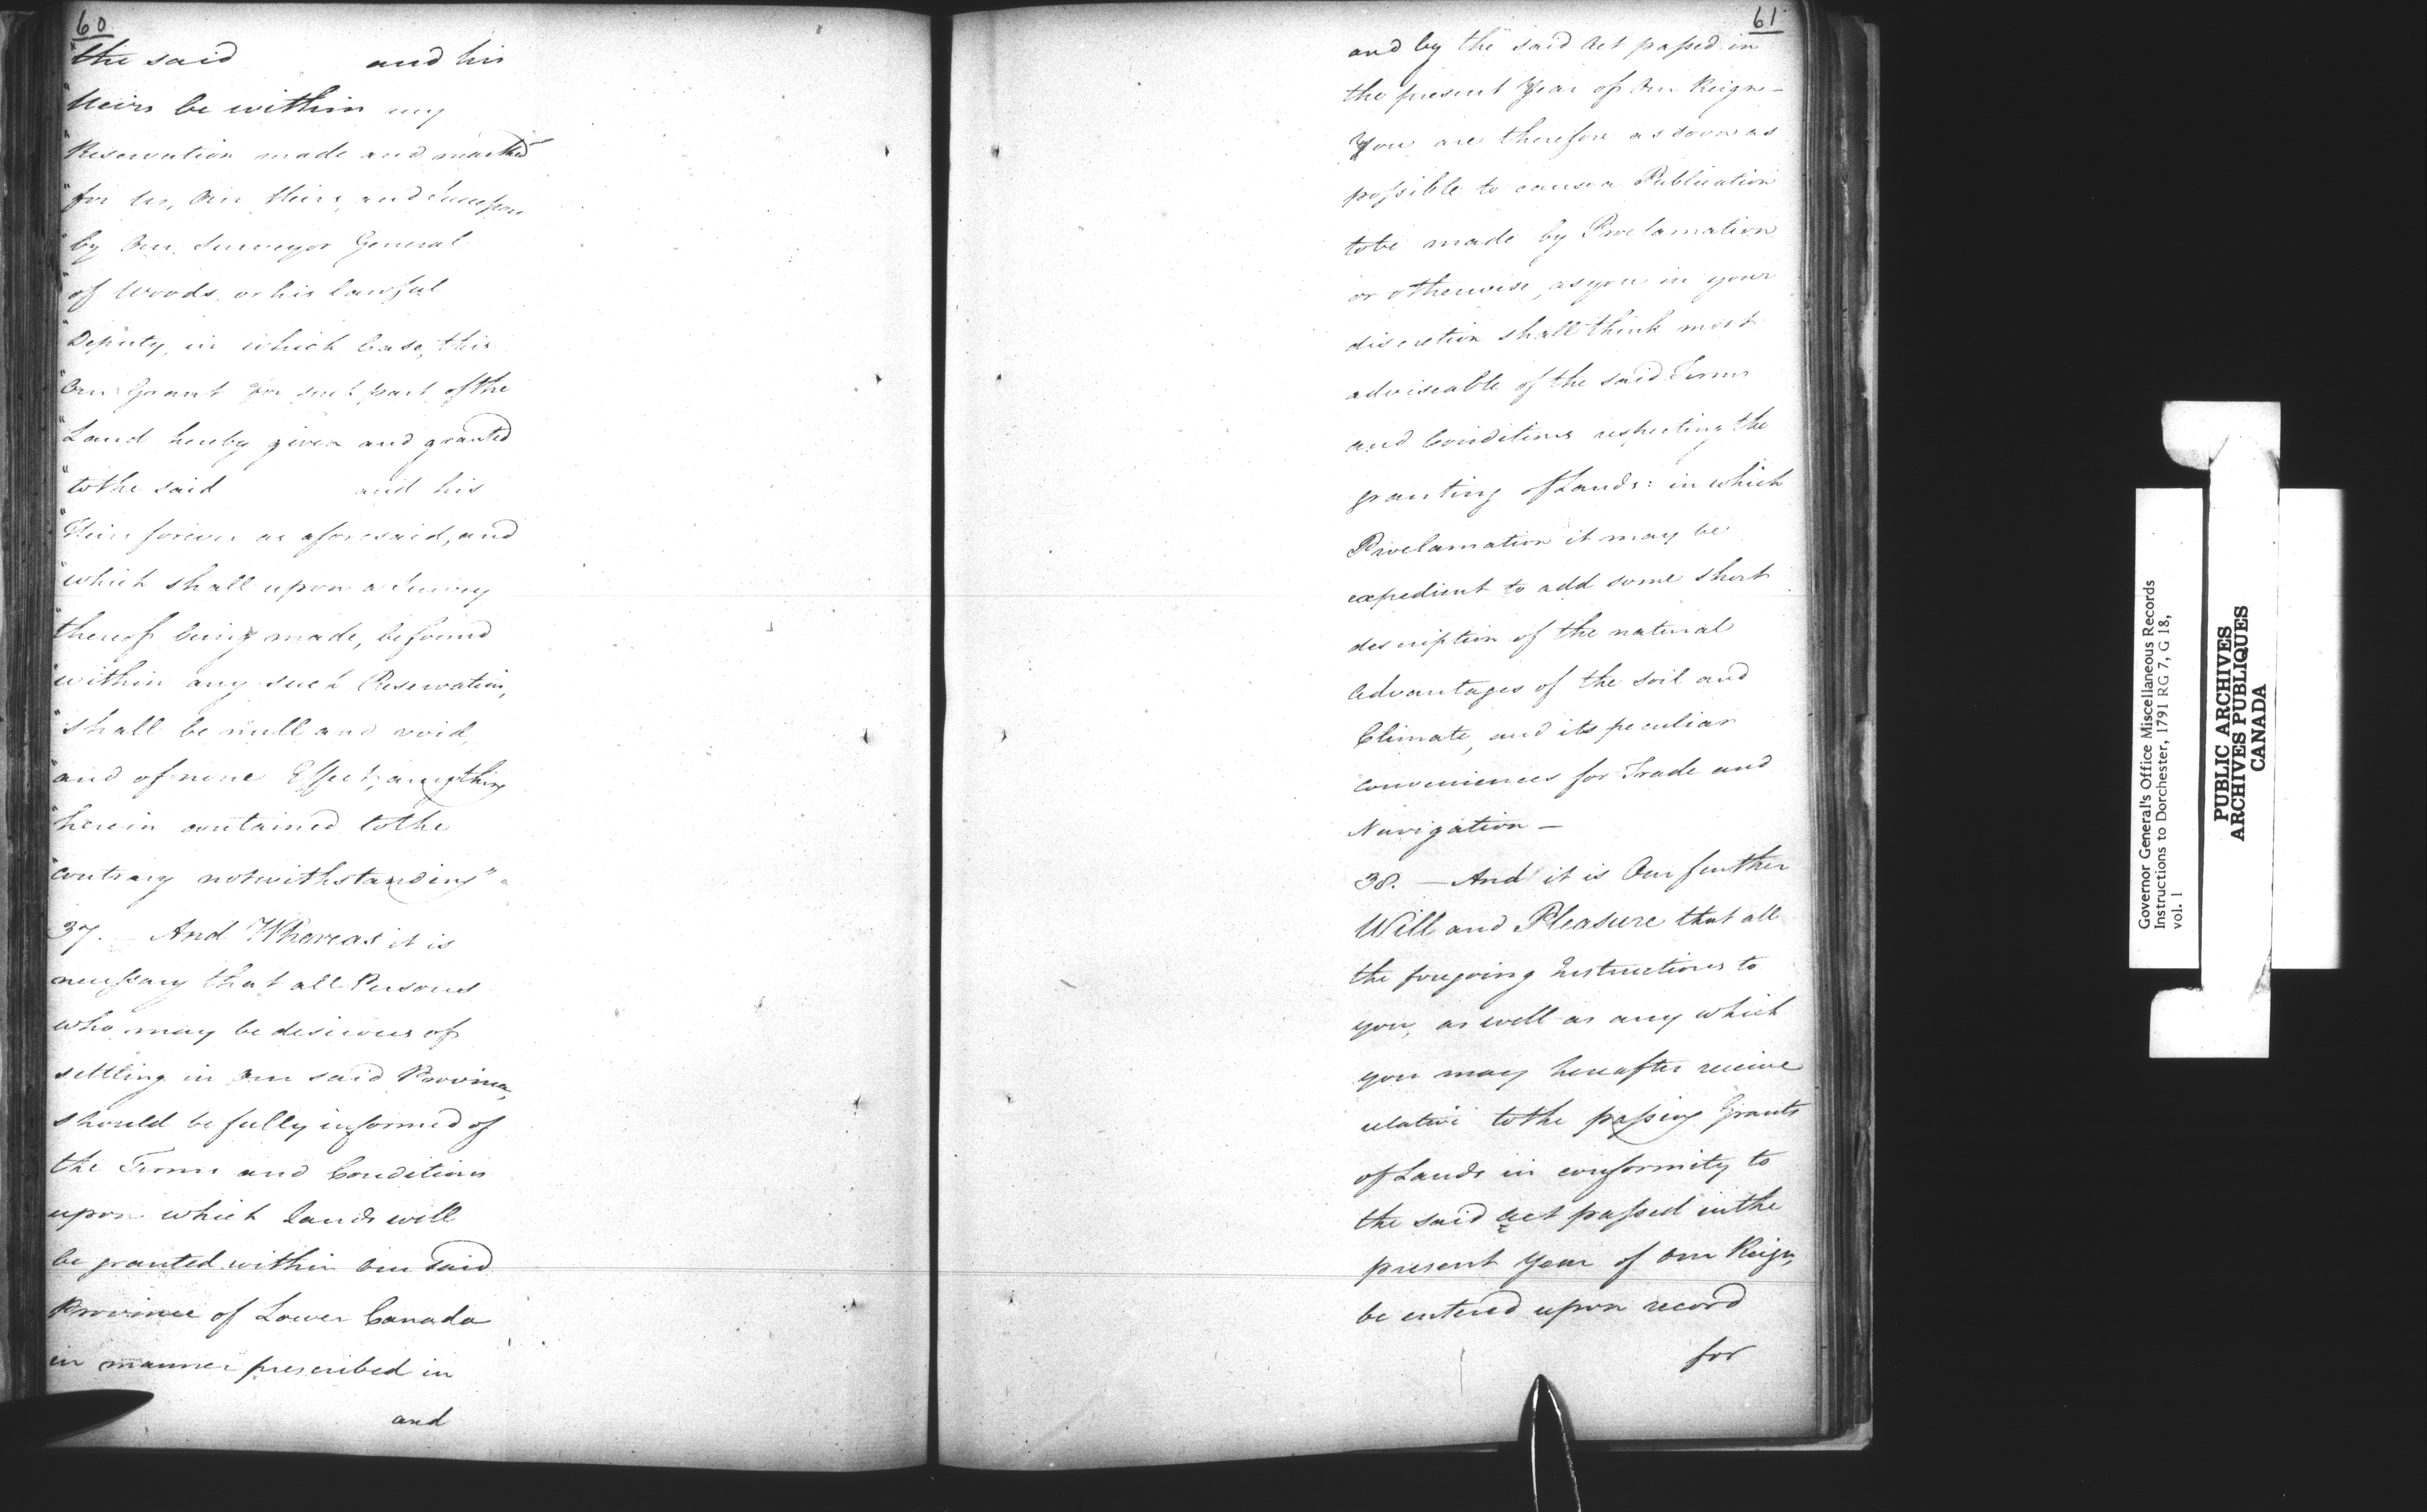 60
"the said and his
"Heirs be within any
"Reservation made and marked
"for Us, Our Heirs, and Successors
"by Our Surveyor General
"of Woods, or his lawful
"Deputy, in which Case, this
"Our Grant for such part of the
"Land hereby given and granted
"to the said and his
"Heirs forever as aforesaid, and
"which shall upon a Survey
"thereof being made, be found
"within any such Reservation,
"shall be null and void,
"and of none Effect, anything
"herein contained to the
"contrary notwithstanding"
37. And Whereas it is
necessary that all Persons
who may be desirous of
settling in Our said Province,
should be fully informed of
the Terms and Conditions
upon which lands will
be granted within Our said
Province of Lower Canada
in manner prescribed in
and
61
and by the said Act passed in
the present Year of Our Reign –
You are therefore as soon as
possible to cause a Publication
to be made by Proclamation
or otherwise, as you in your
discretion shall think most
adviseable of the said Terms
and Conditions respecting the
granting of Lands: in which
Proclamation it may be
expedient to add some short
description of the natural
Advantages of the Soil and
Climate, and its peculiar
conveniences for Trade and
Navigation –
38. – And it is Our further
Will and Pleasure that all
the foregoing Instructions to
you, as well as any which
you may hereafter receive
relative to the passing Grants
of Lands in conformity to
the said Act passed in the
present Year of Our Reign,
be entered upon record
for
Governor General's Office Miscellaneous Records
Instructions to Dorchester, 1791 RG 7, G 18,
vol. 1
PUBLIC ARCHIVES
ARCHIVES PUBLIQUES
CANADA